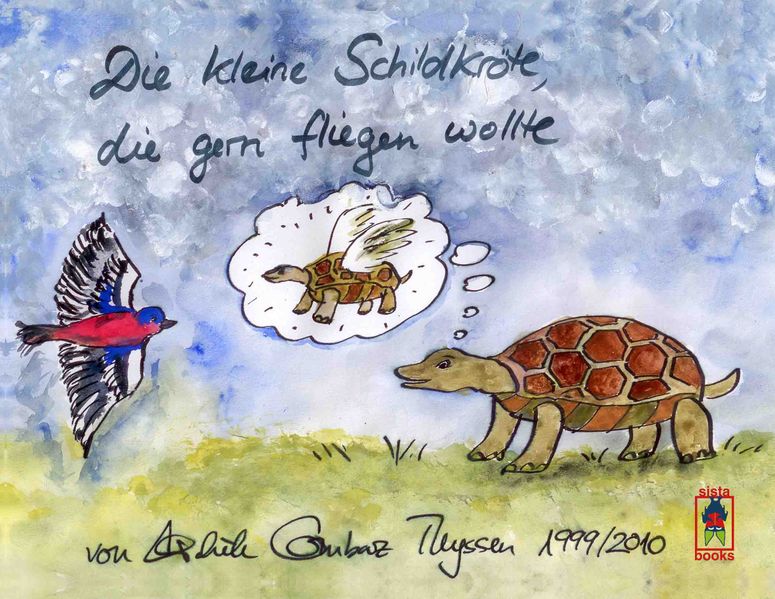 Die kleine Schildkröte,
die gern fliegen wollte
von Gombaz Thyssen 1999/2010
sista
books